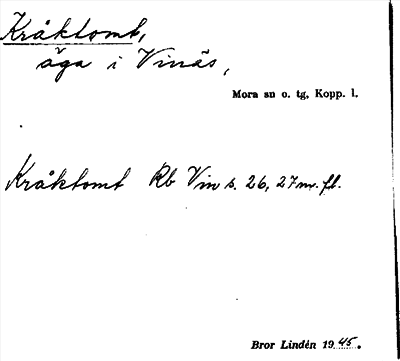 Kråktomt,
äga i Vinäs,
Mora sn o. tg, Kopp. l.
Kråktomt Rb Vin s. 26, 27 m. fl.
Bror Lindén 1945.